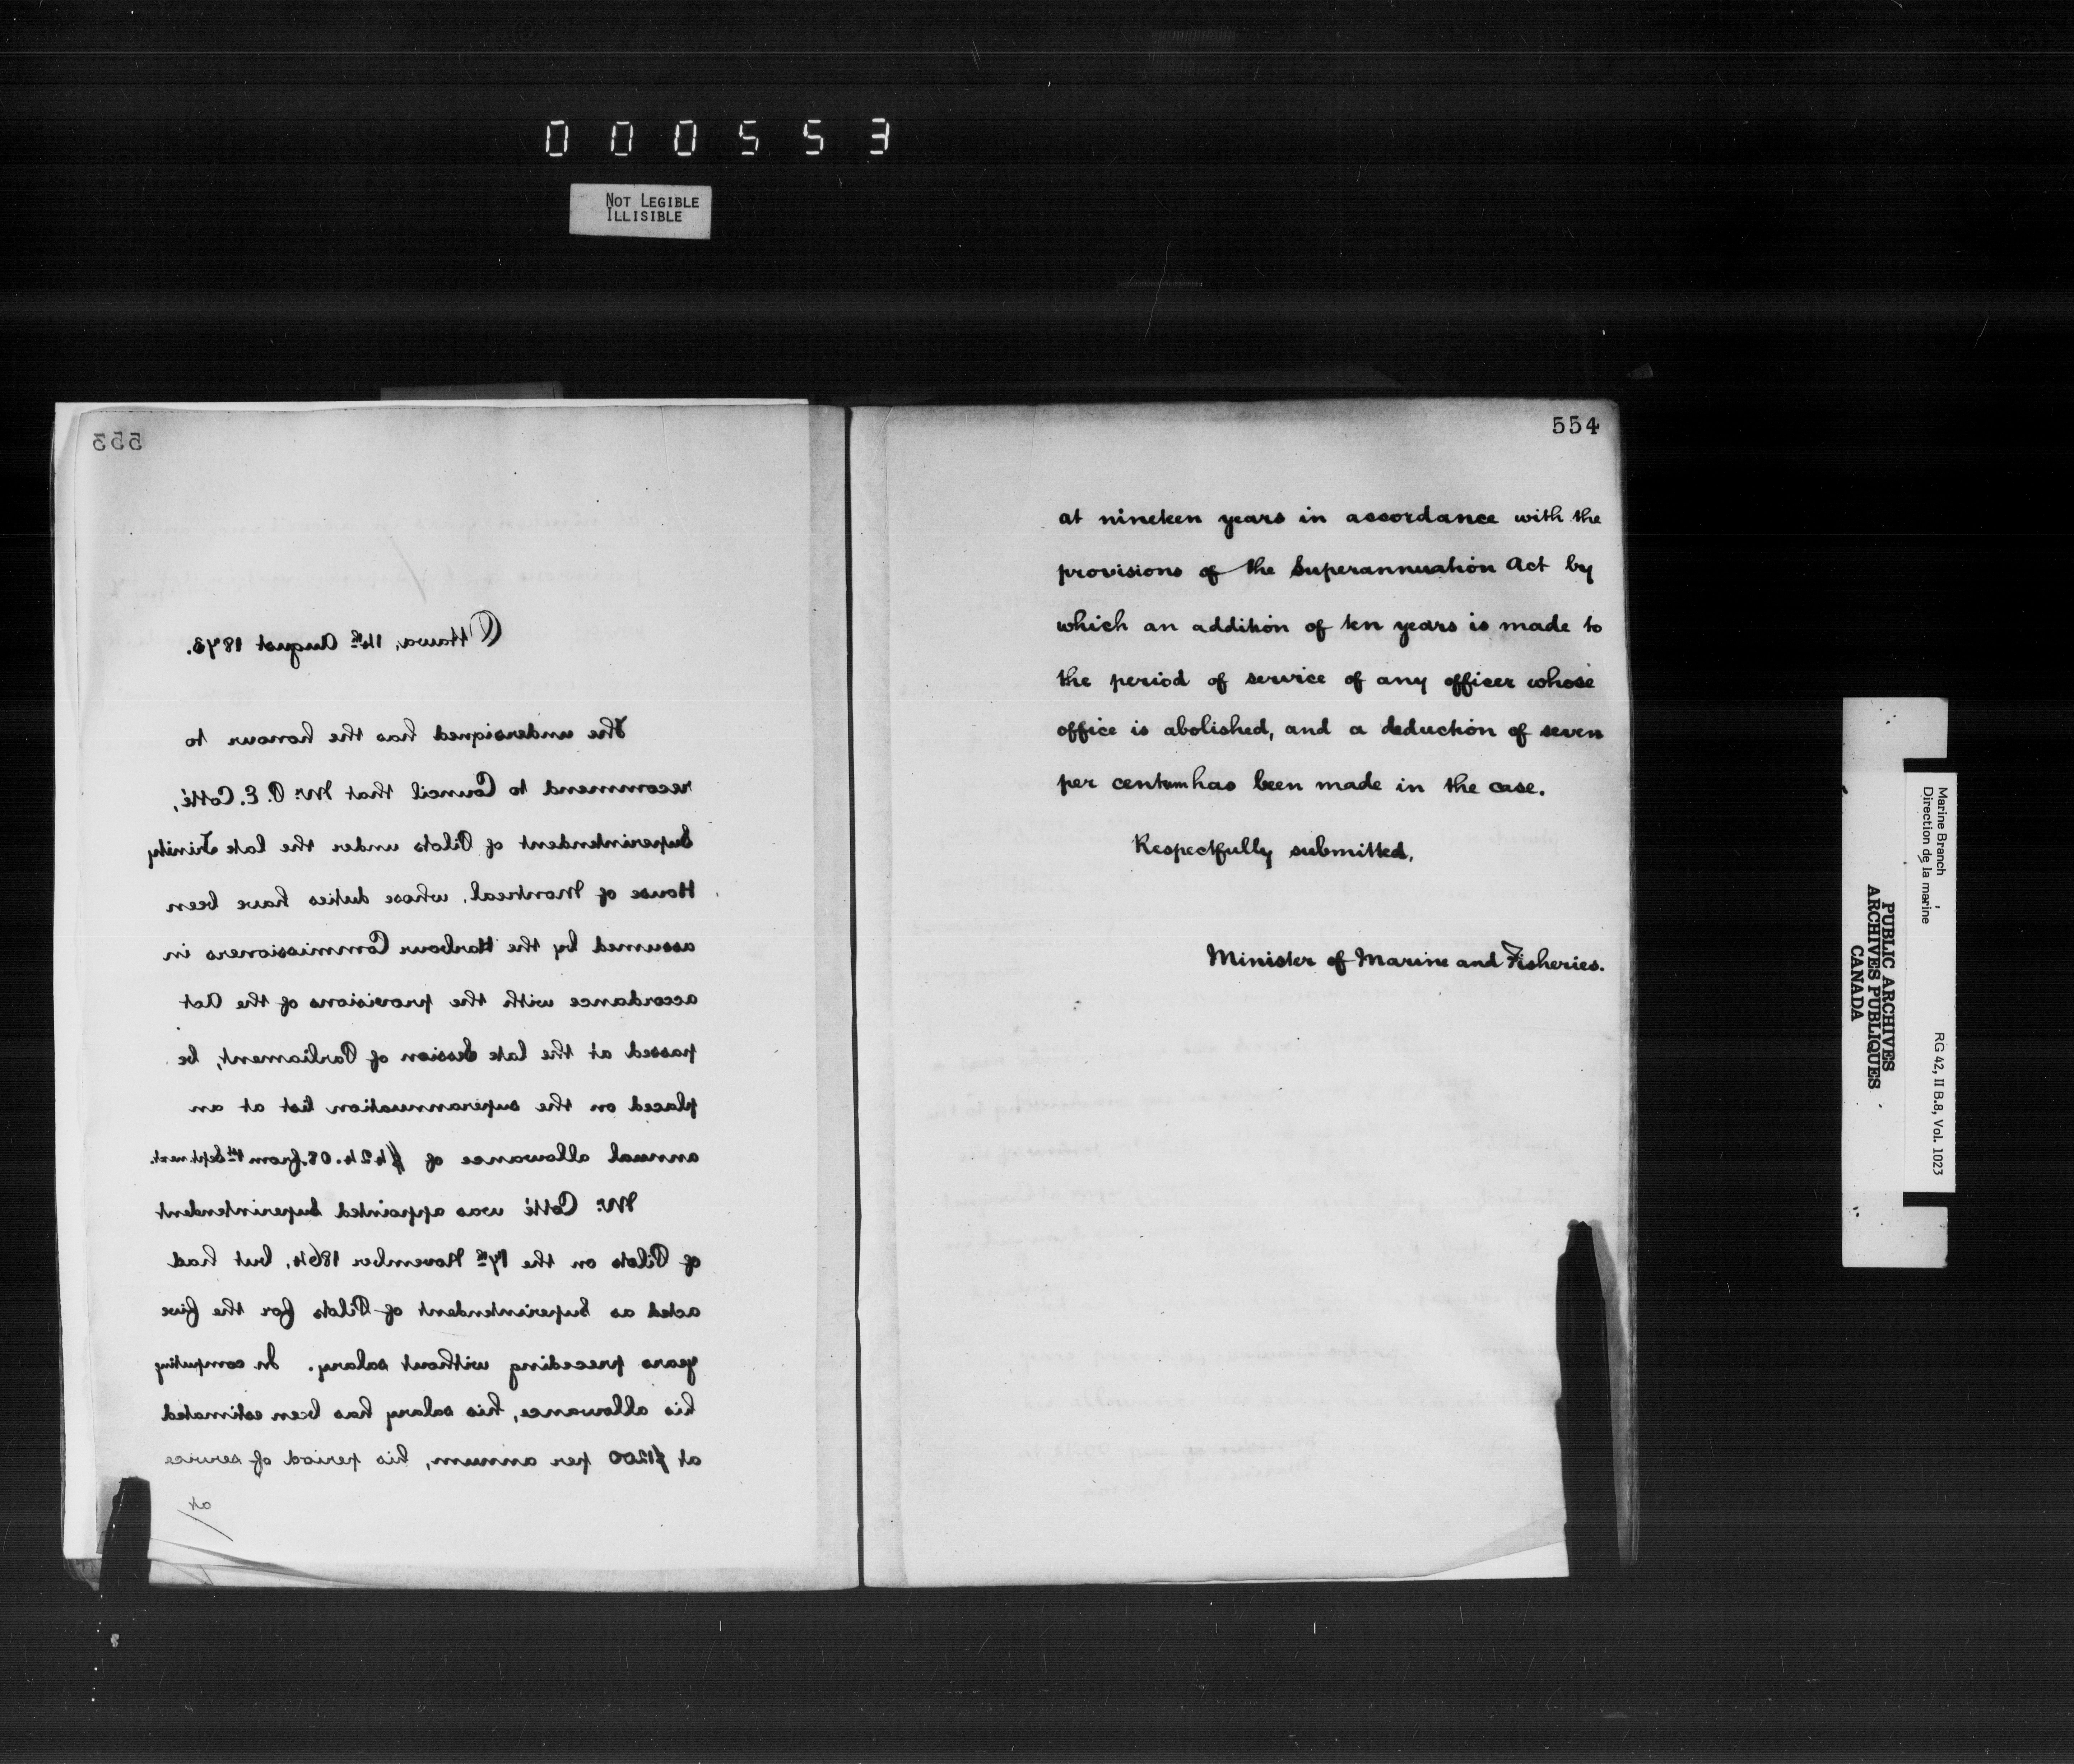 000553
NOT LEGIBLE
ILLISIBLE
553
Ottawa, 14th August 1873.
The undersigned has the honour to
recommend to Council that Mr. P. E. Cotté,
Superintendent of Pilots under the late Trinity
House of Montreal, whose duties have been
assumed by the Harbour Commissioners in
accordance with the provisions of the Act
passed at the late Session of Parliament, be
placed on the superannuation list at an
annual allowance of $424.08. from 1st Sept. next.
Mr. Cotté was appointed Superintendent
of Pilots on the 17th November 1864, but had
acted as Superintendent of Pilots for the five
years preceding without salary. In computing
his allowance, his salary has been estimated
at $1200 per annum, his period of service
at
554
at nineteen years in accordance with the
provisions of the Superannuation Act by
which an addition of ten years is made to
the period of service of any officer whose
office is abolished, and a deduction of seven
per centum has been made in the case.
Respectfully submitted,
Minister of Marine and Fisheries.
Marine Branch
Direction de la marine
RG 42, II B.8, Vol. 1023
PUBLIC ARCHIVES
ARCHIVES PUBLIQUES
CANADA